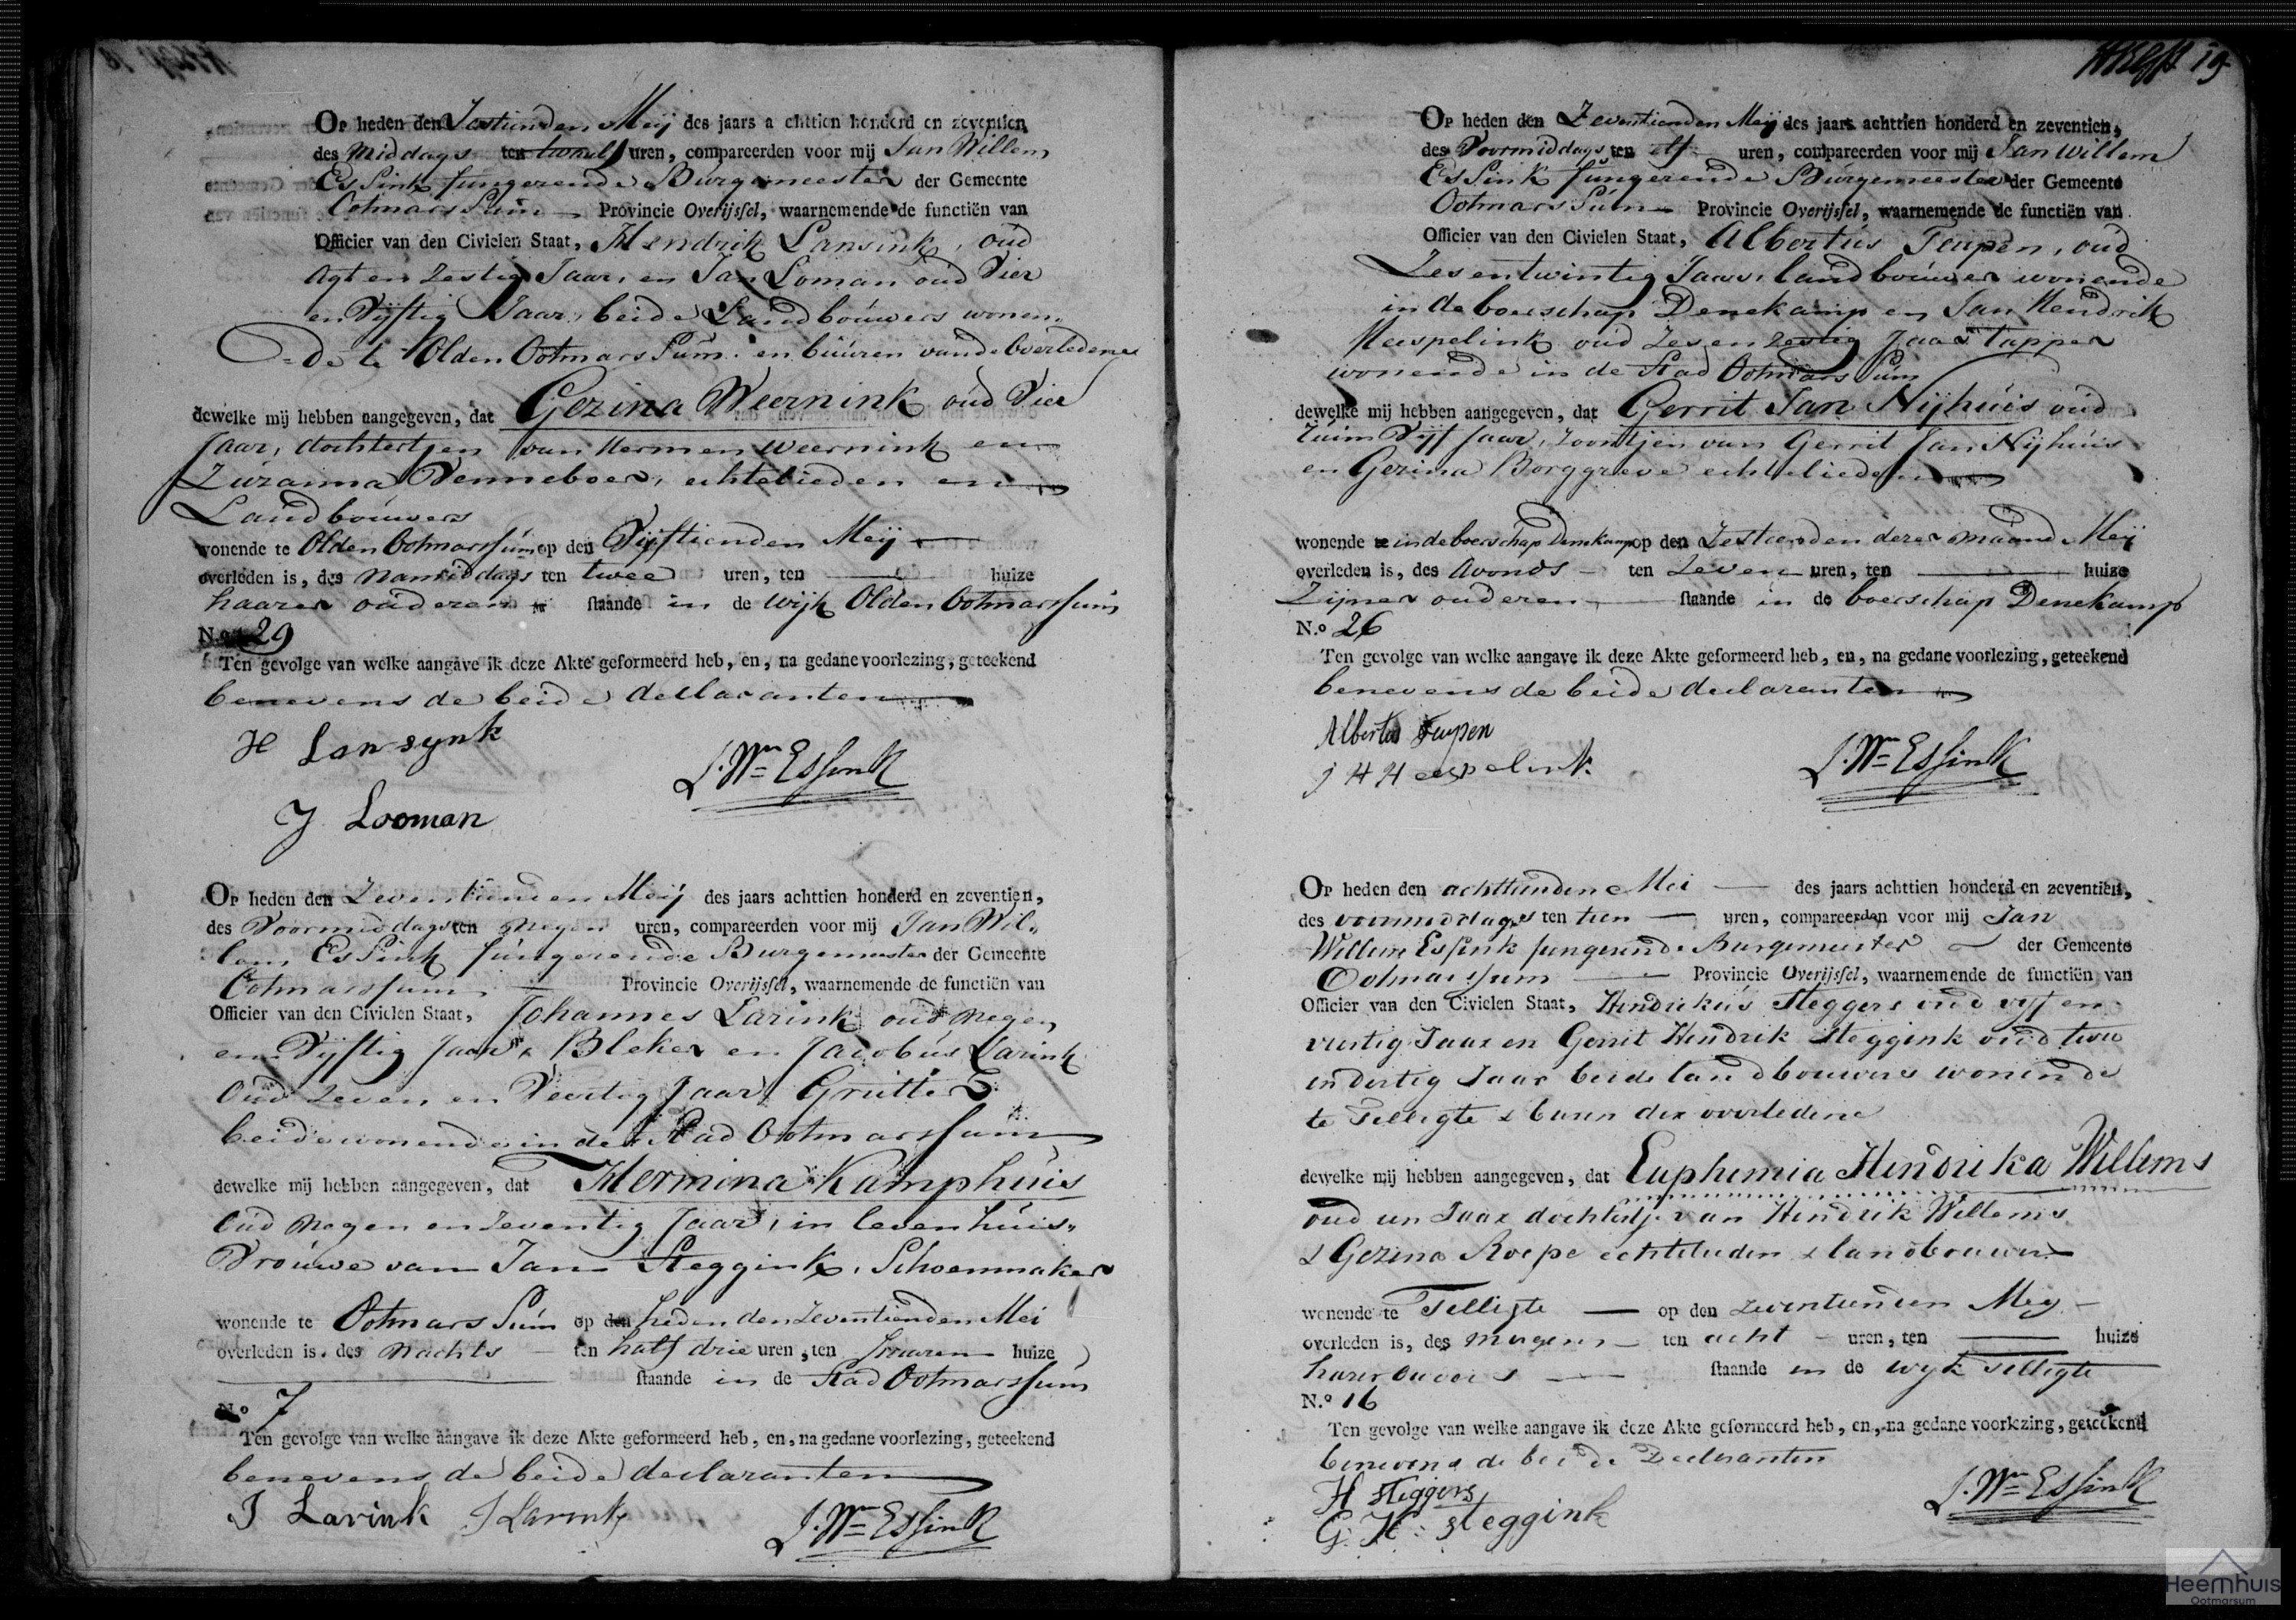 Op heden den Zestienden Meij des jaars achttien honderd en zeventien,
des middags ten twaalf uren, compareerden voor mij Jan Willem
Essink fungerende Burgemeester der Gemeente
Ootmarssum Provincie Overijssel, waarnemende de functiën van
Officier van den Civielen Staat, Hendrik Lansink, oud
Agt en Zestig Jaar, en Jan Loman oud Vier
en Vijftig Jaar, beide Landbouwers wonen-
de te Olden Ootmarssum en buuren van de overledene
dewelke mij hebben aangegeven, dat Gezina Weernink oud Vier
Jaar, dochtertjen van Hermen Weernink en
Zuzanna Venneboer, echtelieden en
Landbouwers
wonende te Olden Ootmarssum op den Vijftienden Meij
overleden is, des Namiddags ten twee uren, ten huize
haarer ouderen staande in de Wijk Olden Ootmarssum
N.o 29
Ten gevolge van welke aangave ik deze Akte geformeerd heb, en, na gedane voorlezing, geteekend
benevens de beide declaranten
H Lansynk
J. Wm Essink
J Looman
Op heden den Zeventienden Meij des jaars achttien honderd en zeventien,
des Voormiddags ten Negen uren, compareerden voor mij Jan Wil-
lem Essink fungerende Burgemeester der Gemeente
Ootmarssum Provincie Overijssel, waarnemende de functiën van
Officier van den Civielen Staat, Johannes Larink oud Negen
en Vijftig Jaar, Bleker en Jacobus Larink
Oud Zeven en Veertig Jaar Grutter
beide wonende in de Stad Ootmarssum
dewelke mij hebben aangegeven, dat Hermina Kamphuis
Oud Negen en Zeventig Jaar, in leven huis-
Vrouwe van Jan Steggink, Schoenmaker
wonende te Ootmarssum op den heden den Zeventienden Mei
overleden is, des Nachts ten half drie uren, ten haaren huize
staande in de Stad Ootmarssum
N.o 7
Ten gevolge van welke aangave ik deze Akte geformeerd heb, en, na gedane voorlezing, geteekend
benevens de beide declaranten
J Larink J Larink J. Wm Essink
19
Op heden den Zeventienden Meij des jaars achttien honderd en zeventien,
des Voormiddags ten elf uren, compareerden voor mij Jan Willem
Essink fungerende Burgemeester der Gemeente
Ootmarssum Provincie Overijssel, waarnemende de functiën van
Officier van den Civielen Staat, Albertus Teupen, oud
Zes en twintig Jaar, landbouwer wonende
in de boerschap Denekamp en Jan Hendrik
Heespelink oud Zes en Zestig Jaar Tapper
wonende in de Stad Ootmarssum
dewelke mij hebben aangegeven, dat Gerrit Jan Nijhuis oud
ruim Vijf Jaar, Zoontjen van Gerrit Jan Nijhuis
en Gezina Borggreve echtelieden
wonende te in de boerschap Denekamp op den Zestienden dezer maand Meij
overleden is, des Avonds ten Zeven uren, ten huize
Zijner ouderen staande in de boerschap Denekamp
N.o 26
Ten gevolge van welke aangave ik deze Akte geformeerd heb, en, na gedane voorlezing, geteekend
benevens de beide declaranten
Albertus Teupen
J H Heespelink
J. Wm Essink
Op heden den achttienden Mei des jaars achttien honderd en zeventien,
des voormiddags ten tien uren, compareerden voor mij Jan
Willem Essink fungerende Burgemeester der Gemeente
Ootmarssum Provincie Overijssel, waarnemende de functiën van
Officier van den Civielen Staat, Hendrikus Steggers oud vijf en
veertig Jaar en Gerrit Hendrik Steggink oud twee
en dertig Jaar beide landbouwers wonende
te Tilligte & buren der overledene
dewelke mij hebben aangegeven, dat Euphemia Hendrika Willems
oud een Jaar dochtertje van Hendrik Willems
& Gezina Roepe echtelieden & landbouwers
wonende te Tilligte op den zeventienden Mey
overleden is, des morgens ten acht uren, ten huize
harer ouders staande in de wyk Tilligte
N.o 16
Ten gevolge van welke aangave ik deze Akte geformeerd heb, en, na gedane voorlezing, geteekend
benevens de beide Declaranten
H Steggers
G: H: Steggink
J. Wm Essink
Heemhuis
Ootmarsum